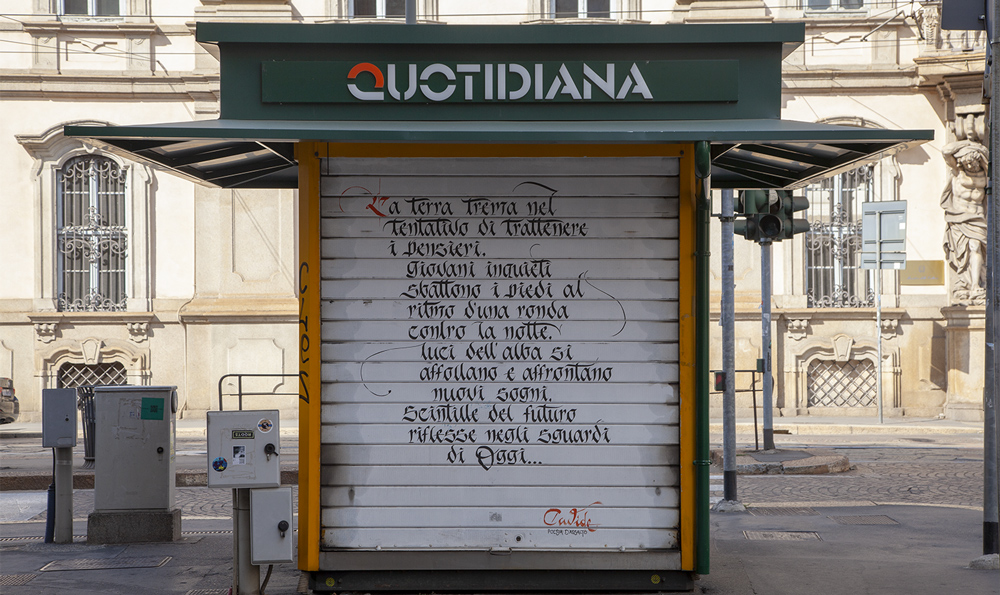 QUOTIDIANA
La terra trema nel
tentativo di trattenere
i pensieri.
Giovani inquieti
sbattono i piedi al
ritmo d'una ronda
contro la notte.
luci dell'alba si
affollano e affrontano
nuovi sogni.
Scintille del futuro
riflesse negli sguardi
di Oggi...